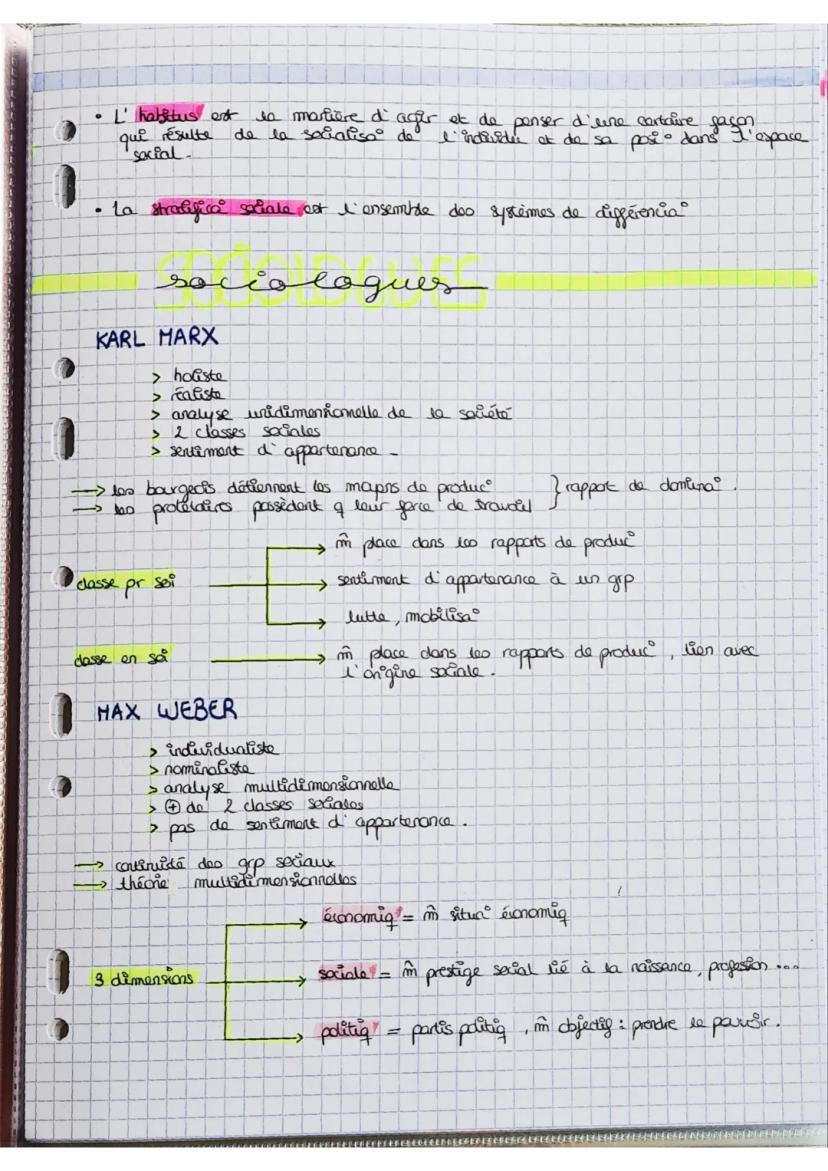 • L' habitus est la manière d'agir et de penser d'une certaine façon
qui résulte de la socialisa° de l'individu et de sa posi° dans l'espace
social.
• La stratifica° sociale est l'ensemble des systèmes de différencia°
SOCIOLOGUES
sociologues
KARL MARX
> holiste
> réaliste
> analyse unidimensionnelle de la société
> 2 classes sociales
> sentiment d'appartenance -
→ les bourgeois détiennent les moyens de produc° } rapport de domina°.
→ les prolétaires possèdent q leur force de travail
m̂ place dans les rapports de produc°
classe pr soi → sentiment d'appartenance à un grp
lutte, mobilisa°
classe en soi → m̂ place dans les rapports de produc°, lien avec
l'origine sociale.
MAX WEBER
> individualiste
> nominaliste
> analyse multidimensionnelle
> ⊕ de 2 classes sociales
> pas de sentiment d'appartenance.
→ continuité des grp sociaux
→ théorie multidimensionnelles
économiq = m̂ situa° économiq
3 dimensions → sociale = m̂ prestige social lié à la naissance, profession ...
politiq = partis politiq, m̂ objectif : prendre le pouvoir.